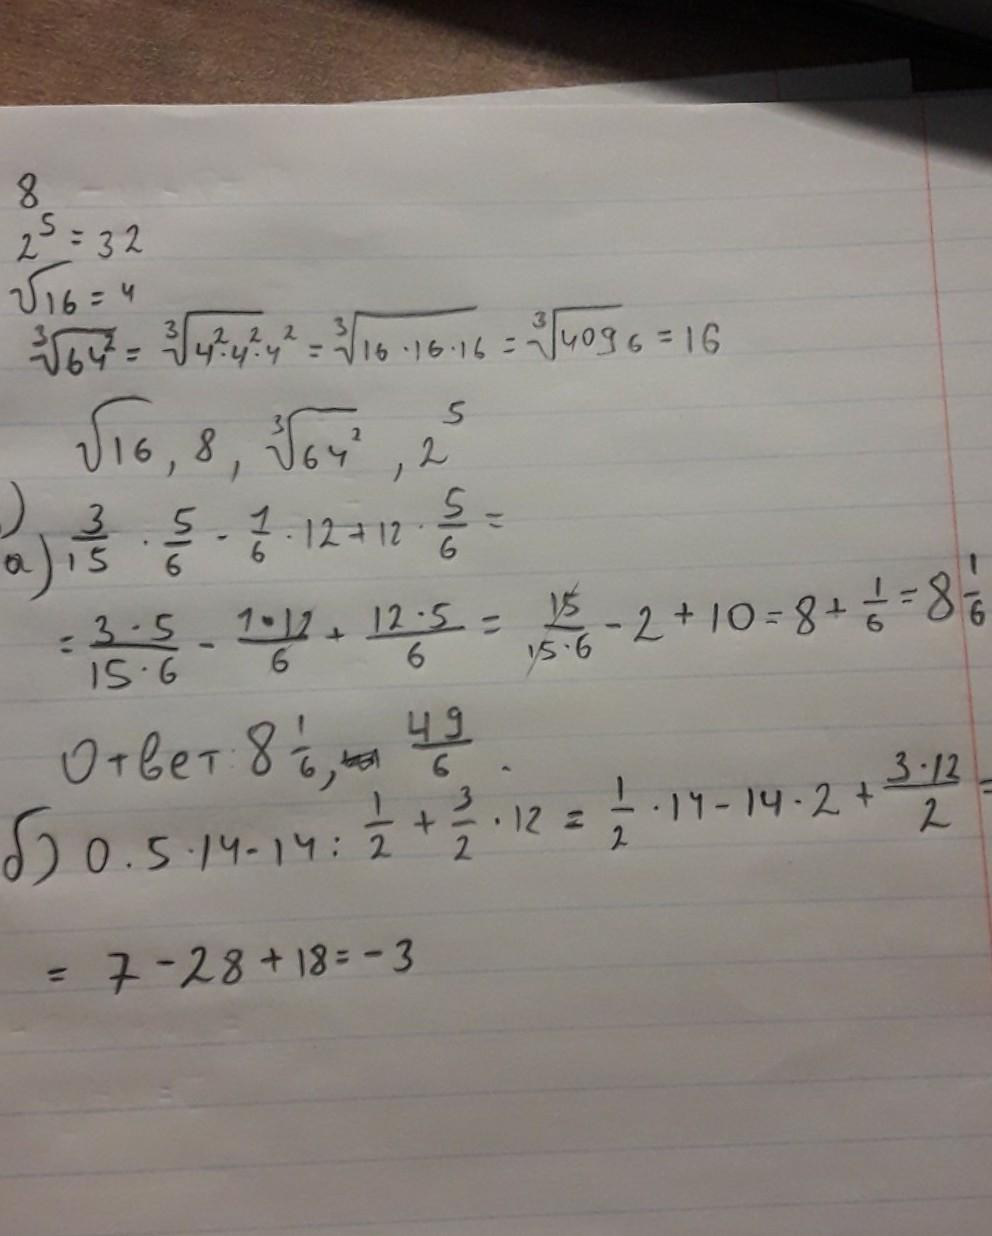 8
2⁵ = 32
√16 = 4
∛64² = ∛4²·4²·4² = ∛16·16·16 = ∛4096 = 16
√16, 8, ∛64², 2⁵
)
а) 3/15 · 5/6 - 1/6 · 12 + 12 · 5/6 =
= 3·5/15·6 - 1·12/6 + 12·5/6 = 15/15·6 - 2 + 10 = 8 + 1/6 = 8 1/6
Ответ: 8 1/6, 49/6.
б) 0.5·14-14: 1/2 + 3/2 · 12 = 1/2 · 14 - 14 · 2 + 3·12/2 =
= 7 - 28 + 18 = -3